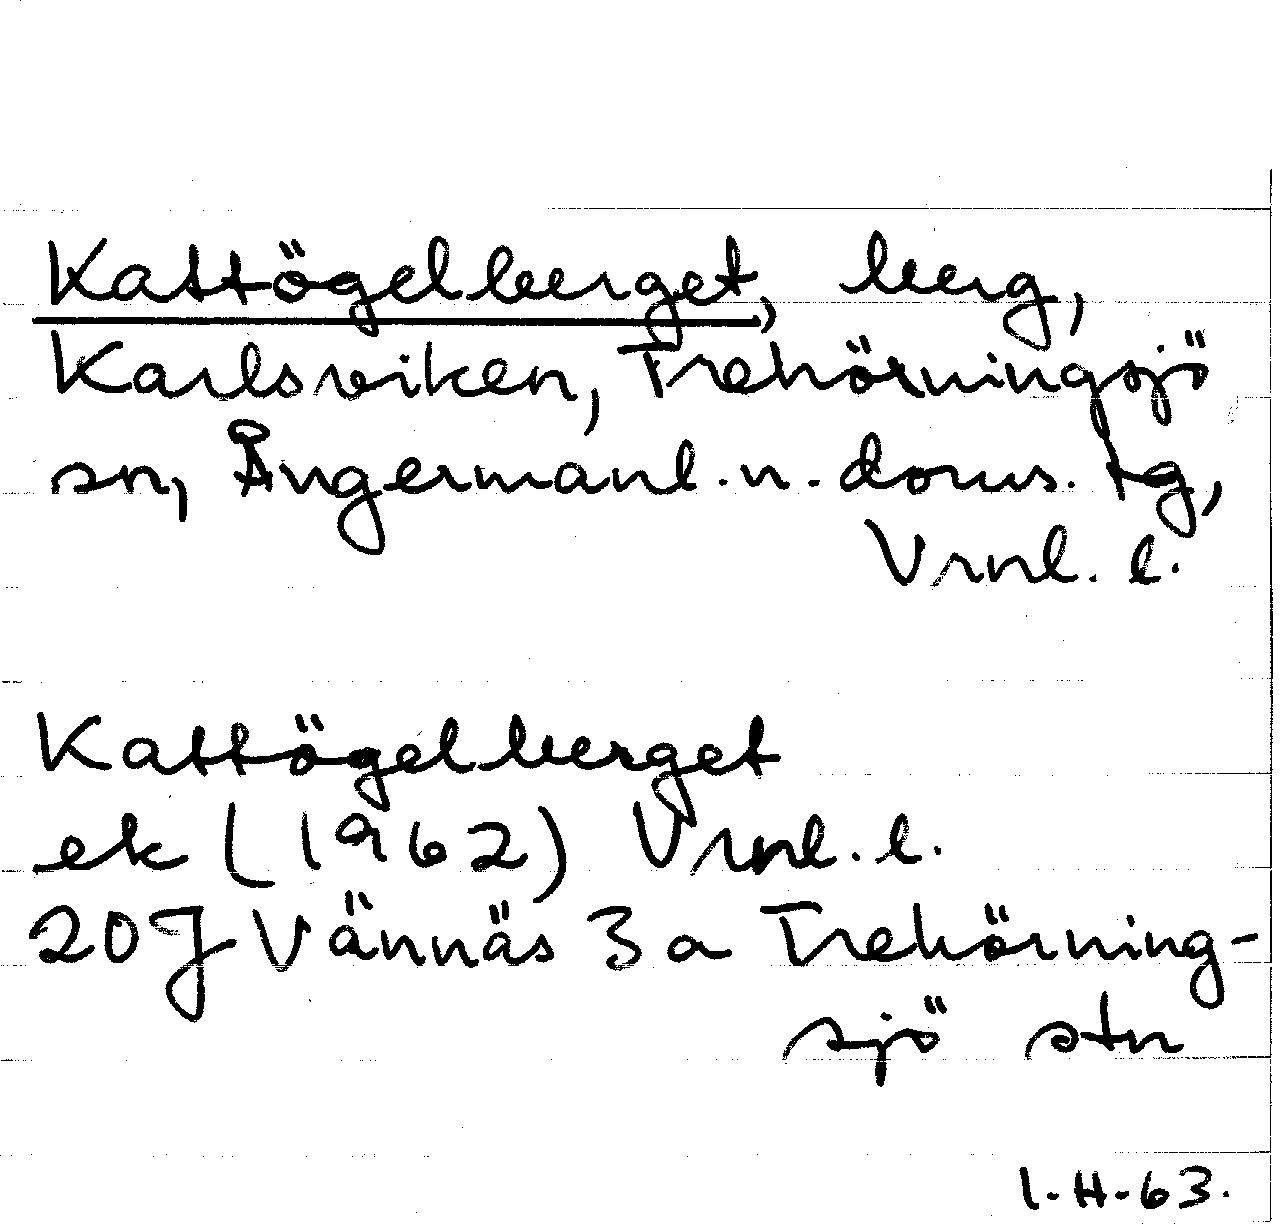 Kattögelberget, berg,
Karlsviken, Trehörningsjö
sn, Ångermanl. n. doms. tg,
Vrnl. l.
Kattögelberget
ek (1962) Vrnl. l.
20J Vännäs 3a Trehörning-
sjö stn
I.H.63.